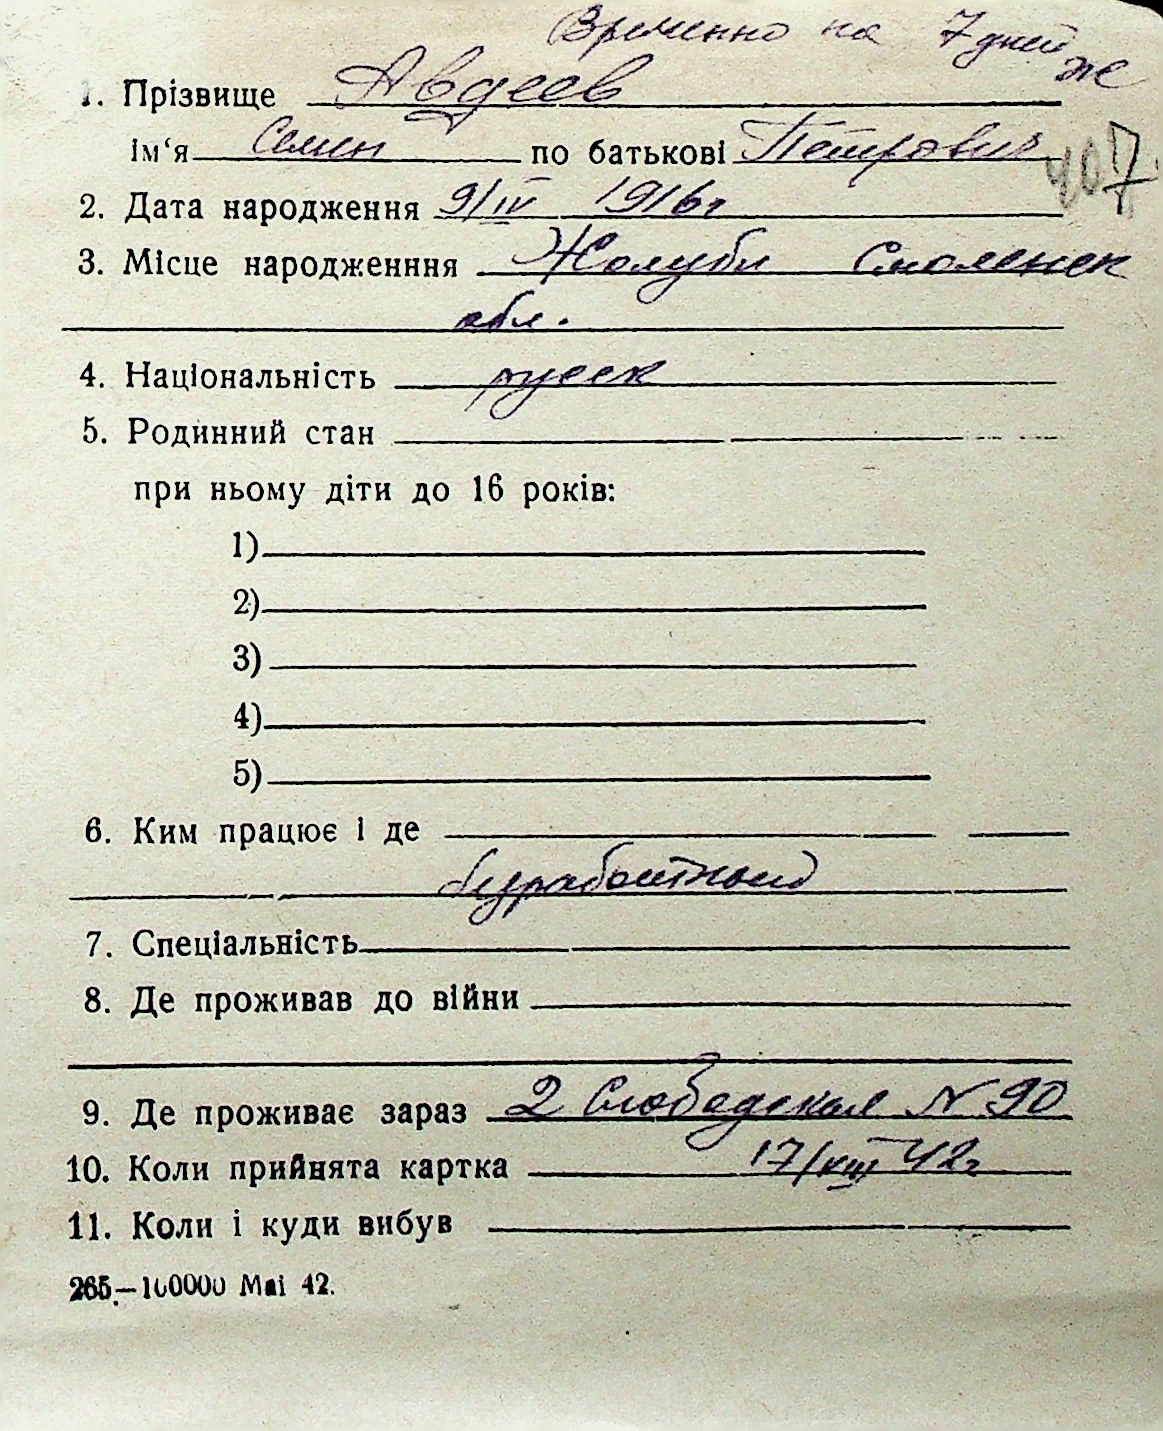 Временно на 7 дней
же
1. Прізвище Авдеев
Ім‘я Семен по батькові Петрович
407
2. Дата народження 9/IV 1916г
3. Місце народженння Жолуби Смоленск
обл.
4. Національність русск
5. Родинний стан
при ньому діти до 16 років:
1)
2)
3)
4)
5)
6. Ким працює і де
безработный
7. Спеціальність
8. Де проживав до війни
9. Де проживає зараз 2 Слободская № 90
10. Коли прийнята картка 17/VIII 42г
11. Коли і куди вибув
265.—100000 Маі 42.